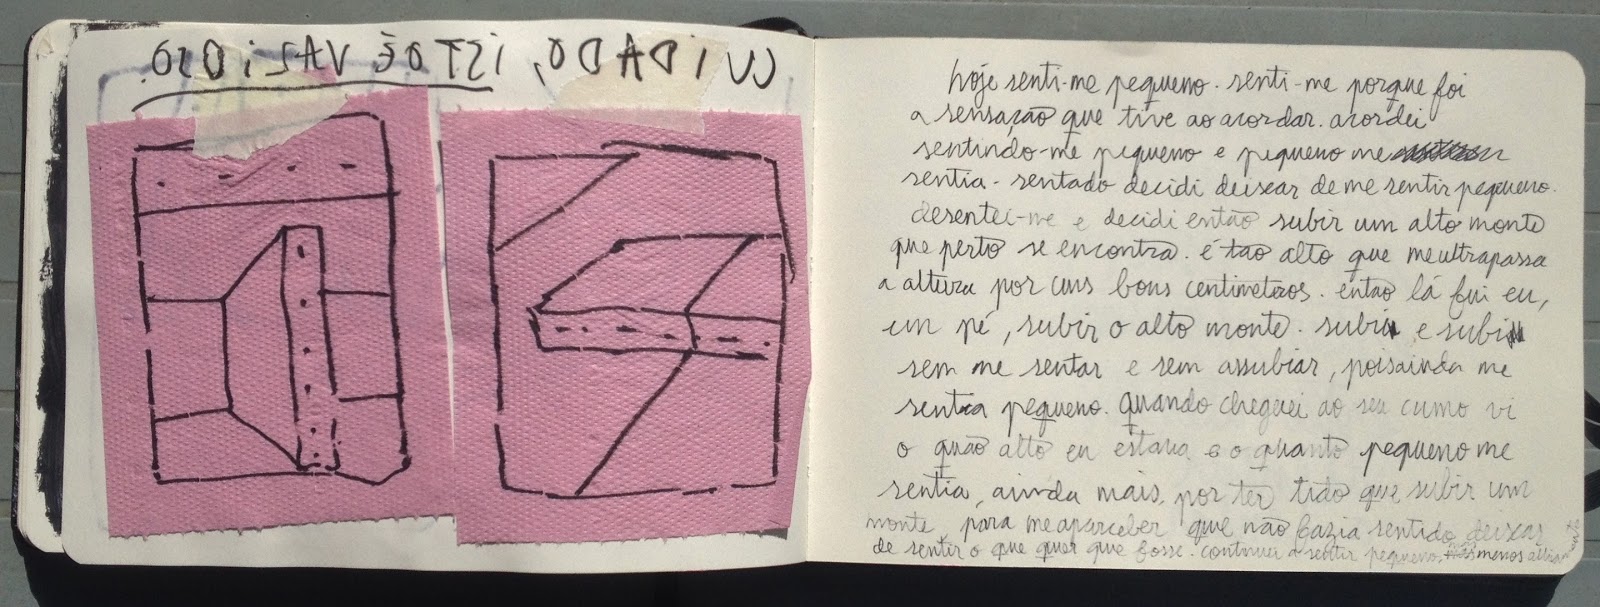 CUiDADO, iSTO É VALiOSO.
hoje senti-me pequeno. senti-me porque foi
a sensação que tive ao acordar. acordei
sentindo-me pequeno e pequeno me
sentia. sentado decidi deixar de me sentir pequeno.
desentei-me e decidi então subir um alto monte
que perto se encontra. é tão alto que me ultrapassa
a altura por uns bons centímetros. então lá fui eu,
um pé, subir o alto monte. subi e subi
sem me sentar e sem assubiar, pois ainda me
sentia pequeno. quando cheguei ao seu cumo vi
o quão alto eu estava e o quanto pequeno me
sentia, ainda mais, por ter tido que subir um
monte, para me aparceber que não fazia sentido deixar
de sentir o que quer que fosse. continuei a sentir pequeno, menos